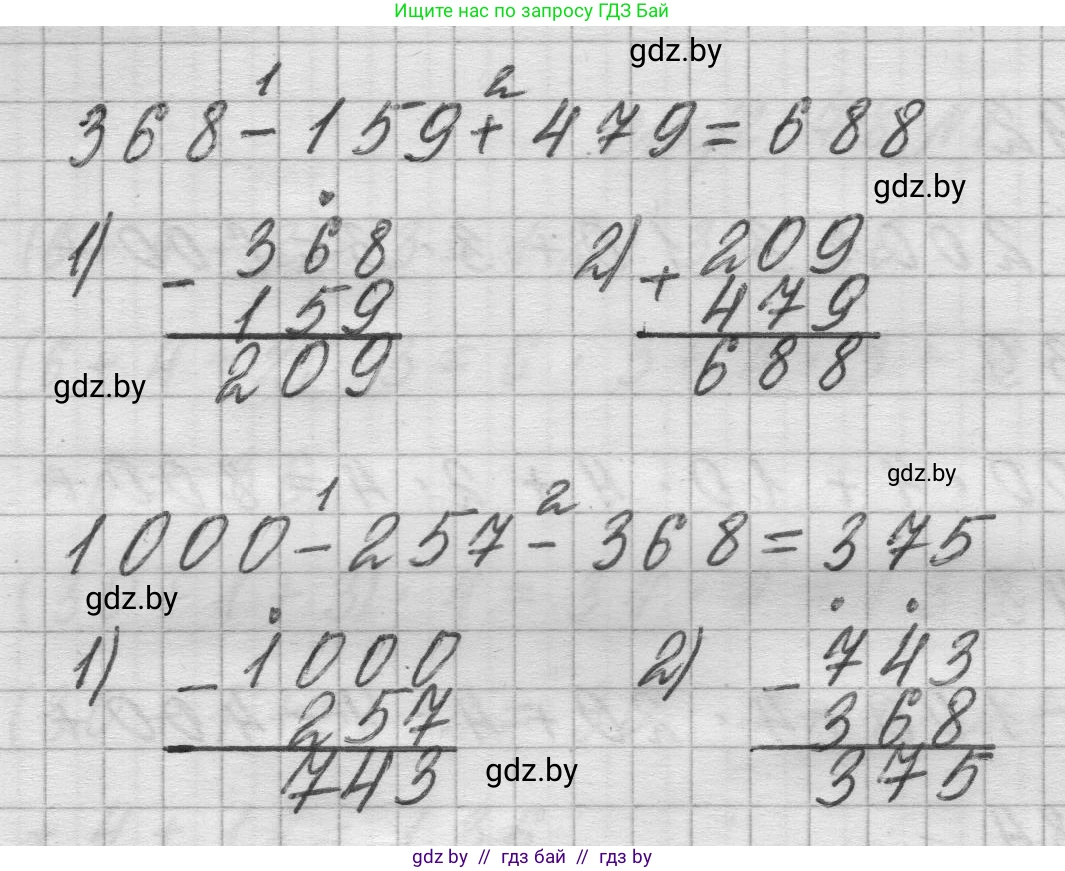 Ищите нас по запросу ГДЗ Бай
gdz.by
1 2
368 - 159 + 479 = 688
gdz.by
1) - 368 2) + 209
159 479
209 688
gdz.by
gdz.by
1 2
1000 - 257 - 368 = 375
gdz.by
1) - 1000 2) - 743
257 368
743 375
gdz.by
gdz by // гдз бай // гдз by